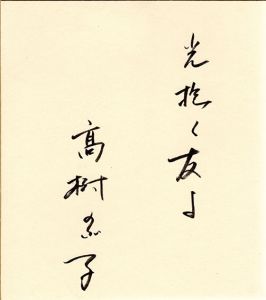 光抱く友よ
髙樹のぶ子